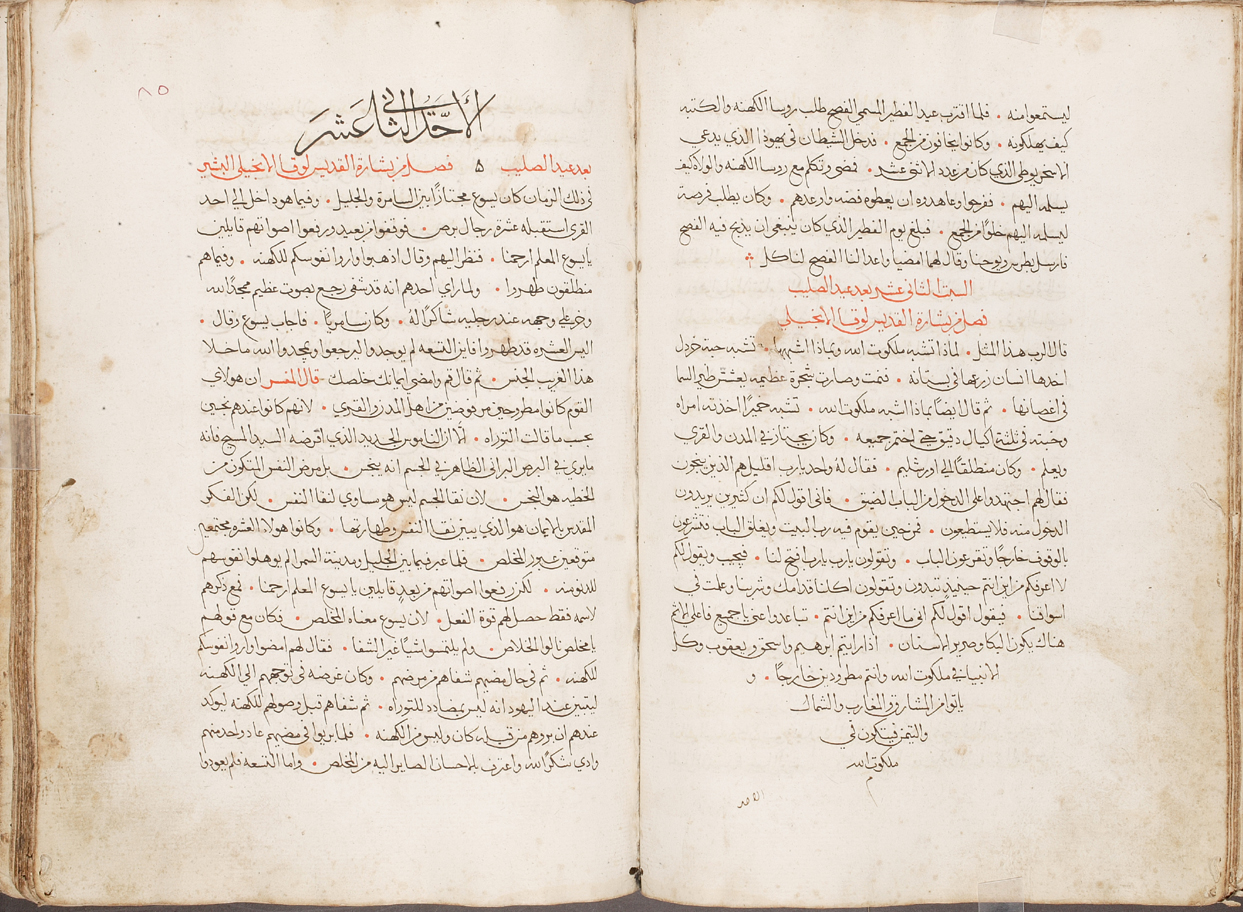 ليستمعوا منه • فلما اقترب عيد الفطير المسمى الفصح طلب روسا الكهنه والكتبه
كيف يهلكونه • وكانوا يخافون من الجمع • فدخل الشيطان في يهوذا الذي يدعي
الاسخريوطي الذي كان من عدد الاثني عشر • فمضى وتكلم مع روسا الكهنه والولاه كيف
يسلمه اليهم • ففرحوا وعاهدوه ان يعطوه فضه واوعدهم • وكان يطلب فرصة
ليسلمه اليهم خلوًا من الجمع • فبلغ يوم الفطير الذي كان ينبغي ان يذبح فيه الفصح
فارسل بطرس ويوحنا وقال لهما امضيا واعدا لنا الفصح لناكل
السبت الثاني عشر بعد عيد الصليب
فصل من بشارة القديس لوقا الانجيلي
قال الرب هذا المثل • لماذا تشبه ملكوت الله وبماذا اشبهها • تشبه حبة خردل
اخذها انسان زرعها في بستانه • فنمت وصارت شجرة عظيمه يعشش طير السما
في اغصانها • ثم قال ايضًا بماذا اشبه ملكوت الله • تشبه خميرًا اخذته امراه
وخبته في ثلثة اكيال دقيق حتى اختمر جميعه • وكان يجتاز في المدن والقرى
ويعلم • وكان منطلقًا الى اورشليم • فقال له واحد يارب اقليل هم الذين ينجون
فقال لهم اجتهدوا على الدخول من الباب الضيق • فاني اقول لكم ان كثيرين يريدون
الدخول منه فلا يستطيعون • فمن حين يقوم فيه رب البيت ويغلق الباب فتشرعون
بالوقوف خارجًا وتقرعون الباب • وتقولون يارب يارب افتح لنا • فيجيب ويقول لكم
لا اعرفكم من اين انتم حينيذ تبدون وتقولون اكلنا قدامك وشربنا وعلمت في
اسواقنا • فيقول اقول لكم اني ما اعرفكم من اين انتم • تباعدوا عني يا جميع فاعلي الاثم
هناك يكون البكا وصرير الاسنان • اذا رايتم ابرهيم واسحق ويعقوب وكل
الانبيا في ملكوت الله وانتم مطرودين خارجًا • و
ياتوا من المشارق والمغارب والشمال
والتيمن فيتكون في
ملكوت الله
م
الاحد
٨٥
الأحد الثاني عشر
بعد عيد الصليب ٥ فصل من بشارة القديس لوقا الانجيلي البشير
في ذلك الزمان كان يسوع مجتازًا بين السامرة والجليل • وفيما هو داخل الي احد
القرى استقبله عشرة رجال برص • فوقفوا من بعيد ورفعوا اصواتهم قايلين
يا يسوع المعلم ارحمنا • فنظر اليهم وقال اذهبوا واروا نفوسكم للكهنه • وفيما هم
منطلقون طهروا • ولما راي احدهم انه قد شفى رجع بصوت عظيم مجدًا لله
وخر على وجهه عند رجليه شاكرًا له • وكان سامريًا • فاجاب يسوع وقال •
اليس العشره قد طهروا فاين التسعه لم يوجدوا ليرجعوا ويمجدوا الله ما خلا
هذا الغريب الجنس • ثم قال قم وامضى ايمانك خلصك • قال المفسر ان هولاي
القوم كانوا مطروحين مرفوضين من اهل المدن والقرى • لانهم كانوا عندهم نجسين
بحسب ما قالت التوراه • الّا ان الناموس الجديد الذي افرضه السيد المسيح فانه
ما يرى في البرص البراني الظاهر في الجسم انه ينجس • بل مرض النفس المتكون من
الخطيه هو النجس • لان نقا الجسم ليس هو ساوي لنقا النفس • لكن الفكر
المقدس بالايمان هو الذي يبين نقا النفس وطهارتها • وكانوا هولا العشره مجتمعين
متوقعين عبور المخلص • فلما عبر فيما بين الجليل ومدينة السمرا لم يوهلوا نفوسهم
للدنو منه • لكن رفعوا اصواتهم من بعدٍ قايلين يا يسوع المعلم ارحمنا • فمع ذكرهم
لاسمه فقط حصل لهم قوة الفعل • لان يسوع معناه المخلص • فكان مع قولهم
يا مخلص نالوا الخلاص • ولم يلتمسوا شيًا غير الشفا • فقال لهم امضوا واروا نفوسكم
للكهنه • ثم في حال مضيهم شفاهم من مرضهم • وكان غرضه في توجههم الي الكهنه
ليتبين عند اليهود انه ليس بمضادد للتوراه • ثم شفاهم قبل وصولهم للكهنه ليوكد
عندهم ان بروهم من قبله كان وليس من الكهنه • فلما بريوا في مضيهم عاد واحد منهم
وادي شكرًا لله واعترف بالاحسان الصاير اليه من المخلص • واما التسعه فلم يعودوا